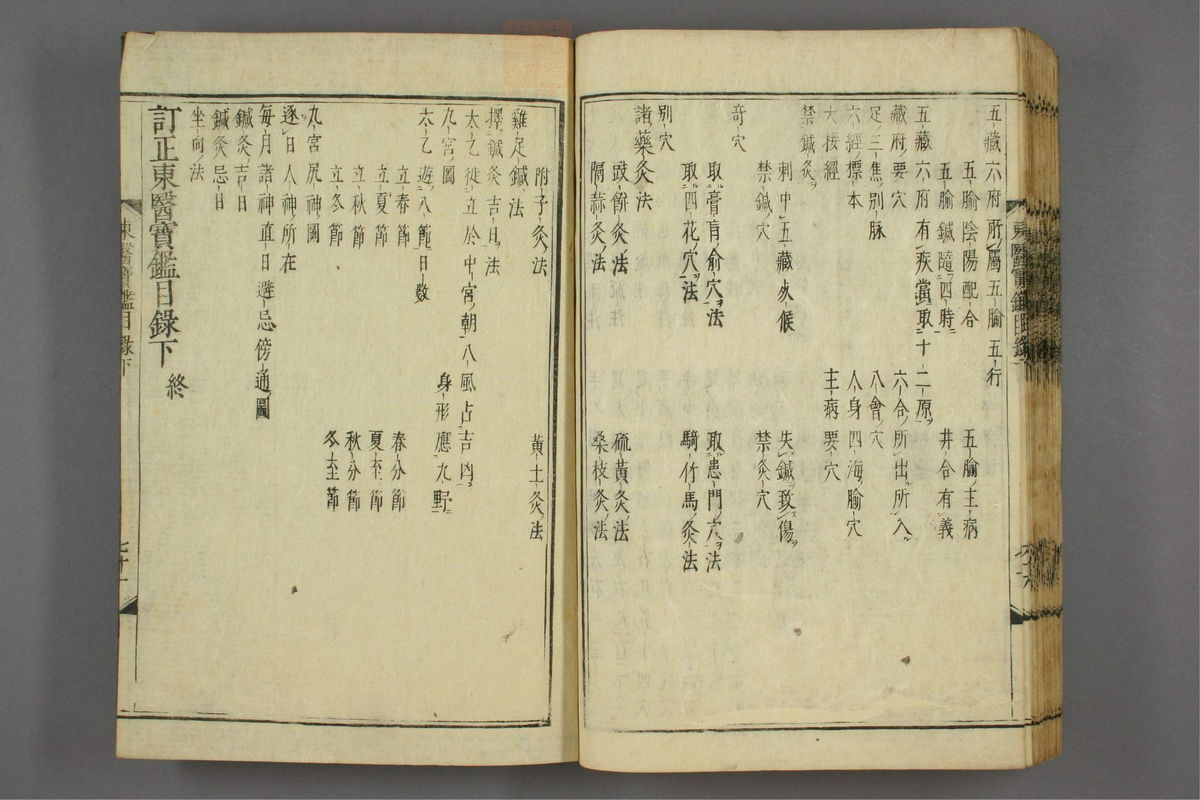 五藏六府所屬五腧五行
五腧陰陽配合
五腧主病
五腧鍼隨四時
井合有義
五藏六府有疾當取十二原
藏府要穴
六合所出所入
足三焦別脉
八會穴
六經標本
人身四海腧穴
大接經
主病要穴
禁鍼灸
刺中五藏死候
失鍼致傷
禁鍼穴
禁灸穴
奇穴
取膏肓俞穴法
取患門穴法
取四花穴法
騎竹馬灸法
別穴
諸藥灸法
豉餅灸法
硫黃灸法
隔蒜灸法
桑枝灸法
附子灸法
黃土灸法
雞足鍼法
擇鍼灸吉日法
太乙徙立於中宮朝八風占吉凶
九宮圖
身形應九野
太乙遊八節日數
立春節
春分節
立夏節
夏至節
立秋節
秋分節
立冬節
冬至節
九宮尻神圖
逐日人神所在
每月諸神直日避忌傍通圖
鍼灸吉日
鍼灸忌日
坐向法
訂正東醫寶鑑目錄下
終
東醫寶鑑目錄下
七十一